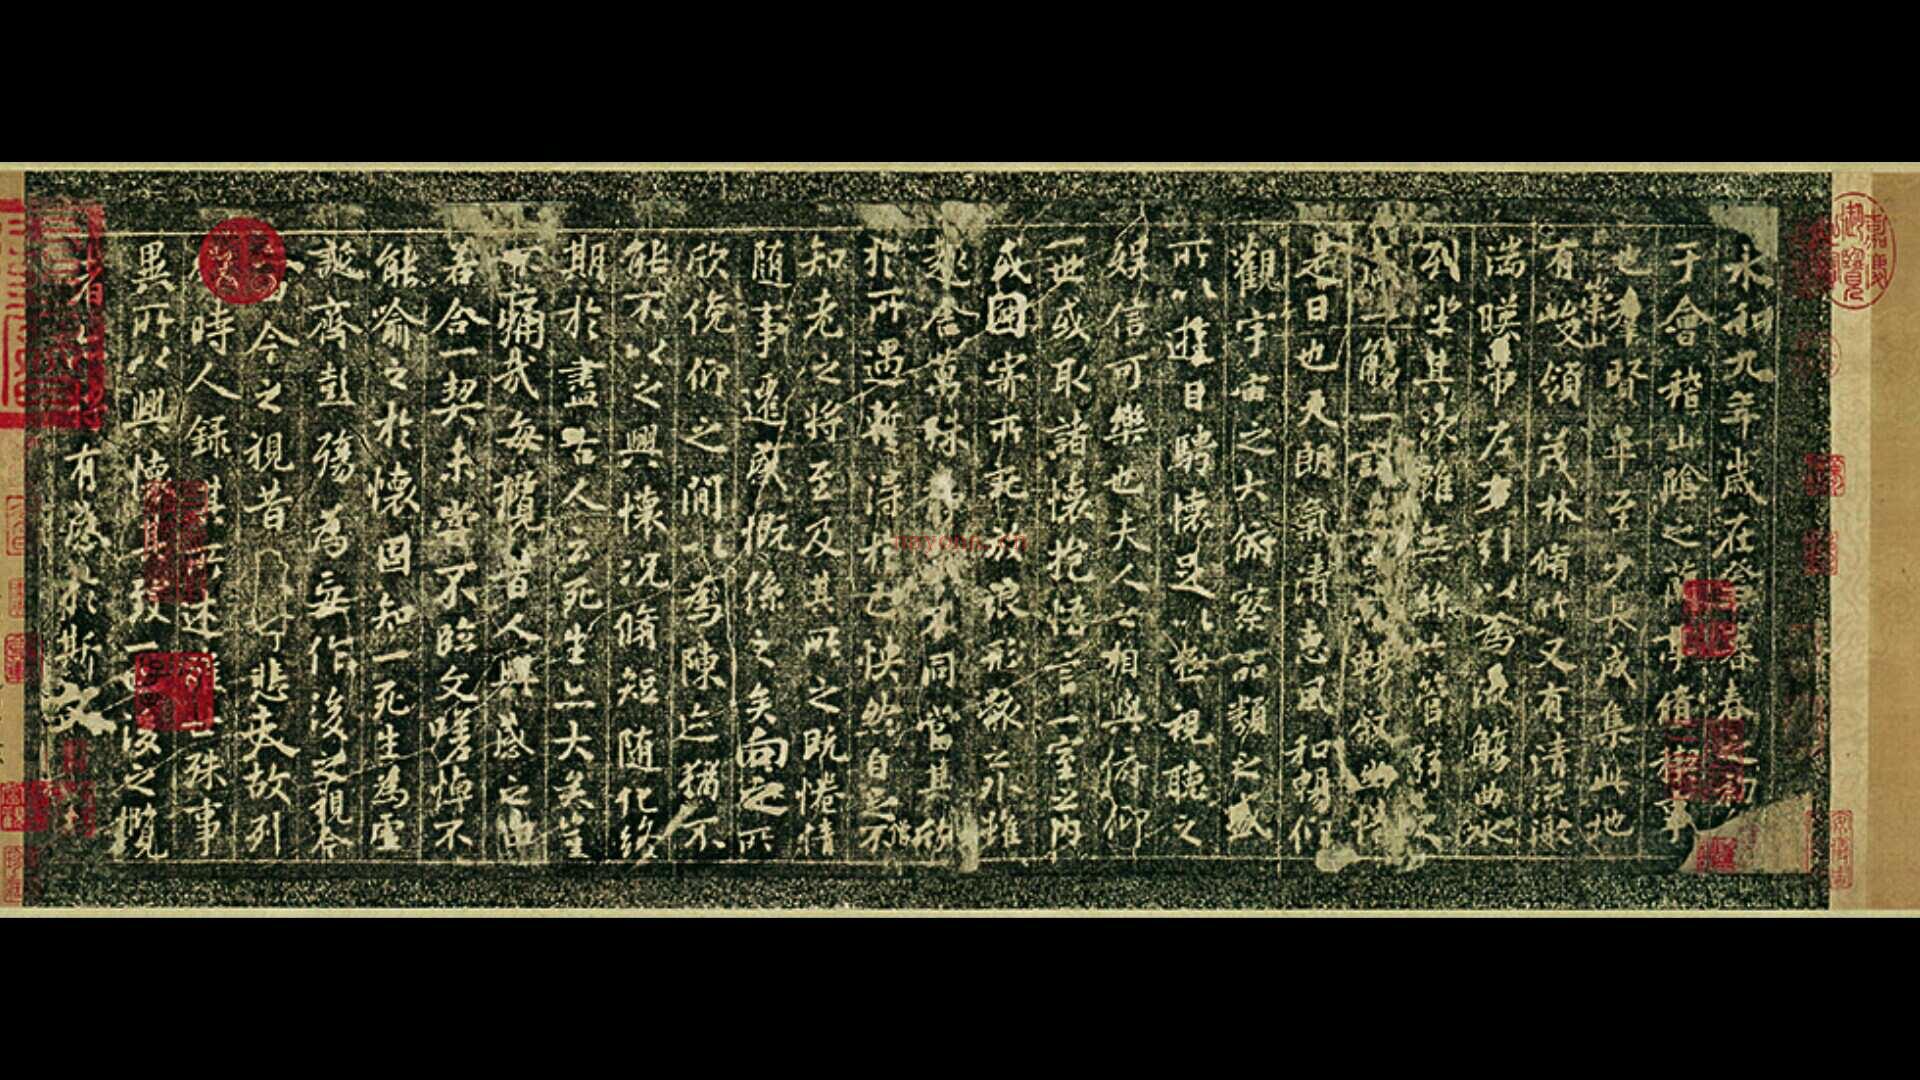 永和九年歲在暮春之初
于會稽山陰之蘭亭脩禊事
也羣賢畢至少長咸集此地
有崇山峻領茂林脩竹又有清流激
湍暎帶左右引以為流觴曲水
列坐其次雖無絲竹管弦之
盛一觴一詠暢敘幽情
是日也天朗氣清惠風和暢仰
觀宇宙之大俯察品類之盛
所以遊目騁懷足以極視聽之
娛信可樂也夫人之相與俯仰
一世或取諸懷抱悟言一室之內
或因寄所託放浪形骸之外雖
趣舍萬殊靜不同當其欣
於所遇蹔得於己怏然自足不
知老之將至及其所之既惓情
隨事遷感慨係之矣向之所
欣俛仰之間以為陳迹猶不
能不以之興懷況脩短隨化終
期於盡古人云死生亦大矣豈
不痛哉每攬昔人興感之由
若合一契未嘗不臨文嗟悼不
能喻之於懷固知一死生為虛
誕齊彭殤為妄作後之視今
今之視昔悲夫故列
時人錄其所述世殊事
異所以興懷其致一也後之攬
者有感於斯文
嘉慶御覽
nayona.cn